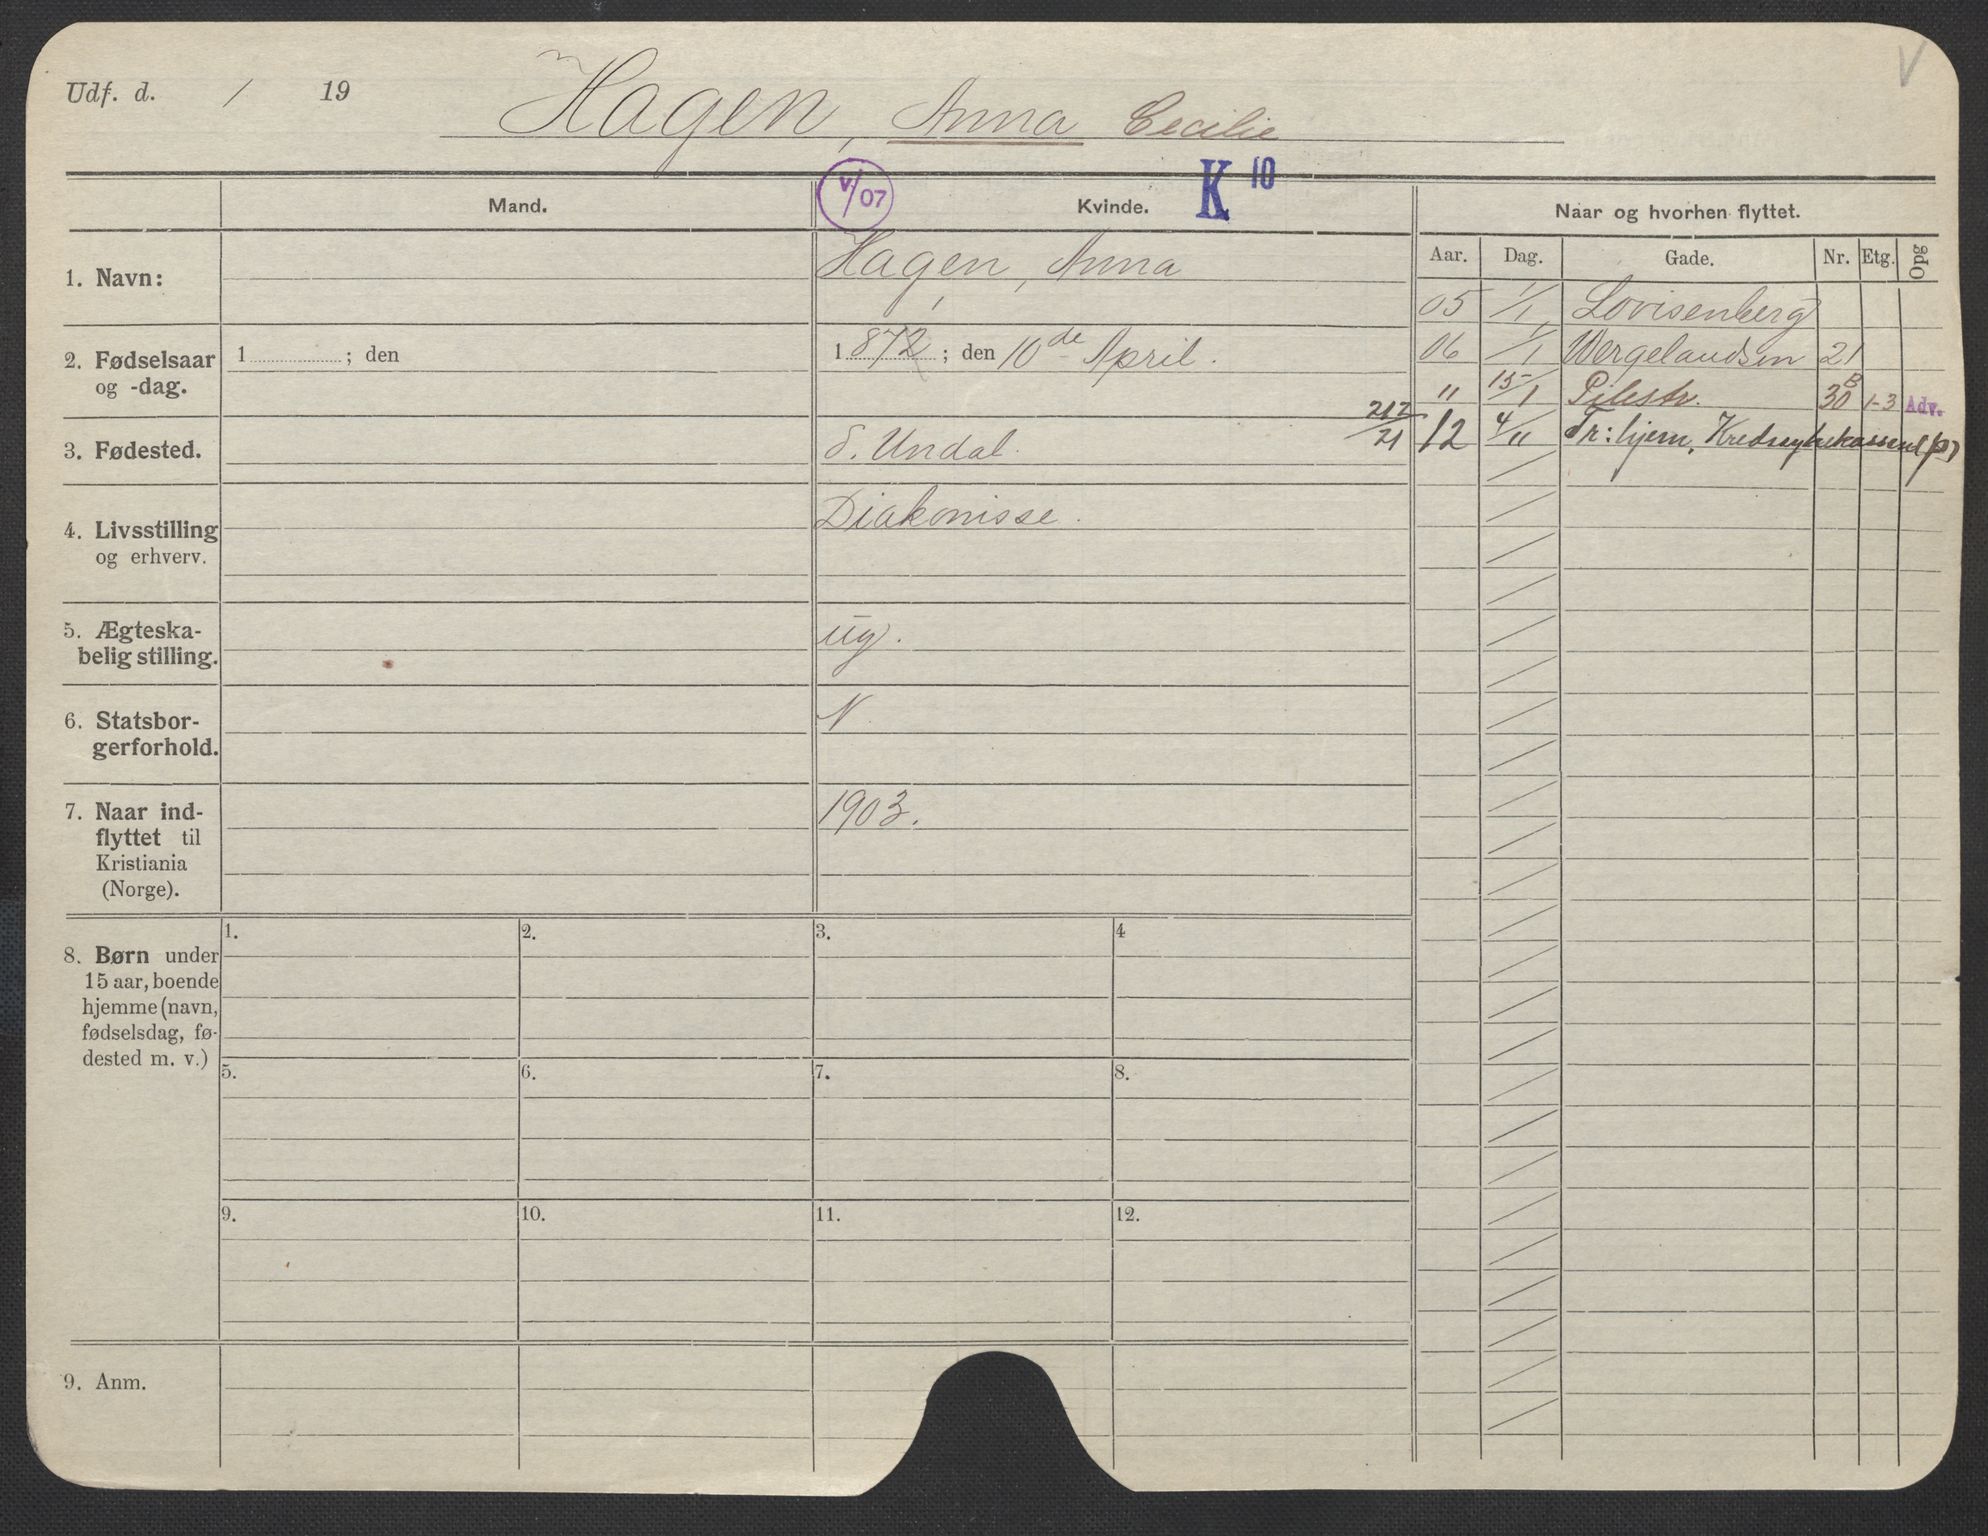 Udf. d. / 19
Hagen, Anna Cecilie
V
V/07
K 10
Mand.
Kvinde.
Naar og hvorhen flyttet.
Aar. Dag. Gade. Nr. Etg. Opg
1. Navn:
Hagen, Anna
05 1/1 Lovisenberg
2. Fødselsaar
og -dag.
1 ; den
1872 ; den 10de April.
06 1/1 Wergelandsvn 21
" 15/1 Pilestr. 30 B 1-3 Adv.
3. Fødested.
S. Undal.
217/21
12 4/11 Tr: hjem,
4. Livsstilling
og erhverv.
Diakonisse.
5. Ægteska-
belig stilling.
ug.
6. Statsbor-
gerforhold.
N.
7. Naar ind-
flyttet til
Kristiania
(Norge).
1903.
8. Børn under
15 aar, boende
hjemme (navn,
fødselsdag, fø-
dested m. v.)
1. 2. 3. 4
5. 6. 7. 8.
9. 10. 11. 12.
9. Anm.